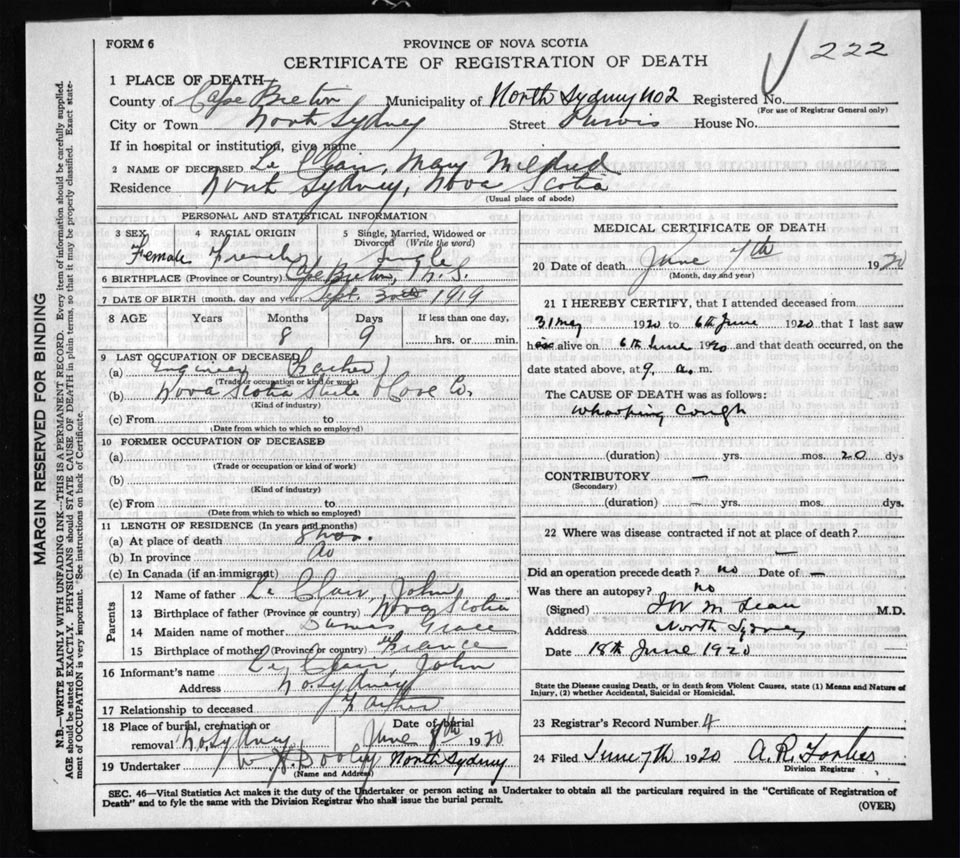 FORM 6
PROVINCE OF NOVA SCOTIA
222
CERTIFICATE OF REGISTRATION OF DEATH
1 PLACE OF DEATH
County of Cape Breton Municipality of North Sydney No 2 Registered No.
(For use of Registrar General only)
City or Town North Sydney Street Purvis House No.
If in hospital or institution, give name
2 NAME OF DECEASED Le Clair, Mary Mildred
Residence North Sydney, Nova Scotia
(Usual place of abode)
PERSONAL AND STATISTICAL INFORMATION
3 SEX 4 RACIAL ORIGIN 5 Single, Married, Widowed or Divorced (Write the word)
Female French Single
6 BIRTHPLACE (Province or Country) Cape Breton, N.S.
7 DATE OF BIRTH (month, day and year) Sept. 1919
8 AGE Years Months Days If less than one day,
8 9 hrs. or min.
9 LAST OCCUPATION OF DECEASED
(a) Engineer (Father)
(Trade or occupation or kind of work)
(b) Nova Scotia Steel & Cove Co.
(Kind of industry)
(c) From to
(Date from which to which so employed)
10 FORMER OCCUPATION OF DECEASED
(a)
(Trade or occupation or kind of work)
(b)
(Kind of industry)
(c) From to
(Date from which to which so employed)
11 LENGTH OF RESIDENCE (In years and months)
(a) At place of death 8 mos.
(b) In province do
(c) In Canada (if an immigrant)
Parents
12 Name of father Le Clair, John
13 Birthplace of father (Province or country) Nova Scotia
14 Maiden name of mother Grace
15 Birthplace of mother (Province or country) France
16 Informant's name Le Clair, John
Address No. Sydney
17 Relationship to deceased Father
18 Place of burial, cremation or removal No. Sydney Date of burial June 8th 1920
19 Undertaker W. H. Dooley North Sydney
(Name and Address)
MEDICAL CERTIFICATE OF DEATH
20 Date of death June 7th 1920
(Month, day and year)
21 I HEREBY CERTIFY, that I attended deceased from
31 May 1920 to 6th June 1920 that I last saw
her alive on 6th June 1920 and that death occurred, on the
date stated above, at 9 a. m.
The CAUSE OF DEATH was as follows:
Whooping Cough
(duration) yrs. mos. 20 dys
CONTRIBUTORY —
(Secondary)
(duration) — yrs. mos. dys.
22 Where was disease contracted if not at place of death?
—
Did an operation precede death? no Date of —
Was there an autopsy? no
(Signed) M Lean M.D.
Address North Sydney
Date 18th June 1920
State the Disease causing Death, or in death from Violent Causes, state (1) Means and Nature of
Injury, (2) whether Accidental, Suicidal or Homicidal.
23 Registrar's Record Number 4
24 Filed June 7th 1920 A. R. Forbes
Division Registrar
SEC. 46—Vital Statistics Act makes it the duty of the Undertaker or person acting as Undertaker to obtain all the particulars required in the "Certificate of Registration of
Death" and to fyle the same with the Division Registrar who shall issue the burial permit.
(OVER)
MARGIN RESERVED FOR BINDING
N.B.—WRITE PLAINLY WITH UNFADING INK—THIS IS A PERMANENT RECORD. Every item of information should be carefully supplied.
AGE should be stated EXACTLY. PHYSICIANS should STATE CAUSE OF DEATH in plain terms, so that it may be properly classified. Exact statement
of OCCUPATION is very important. See instructions on back of Certificate.